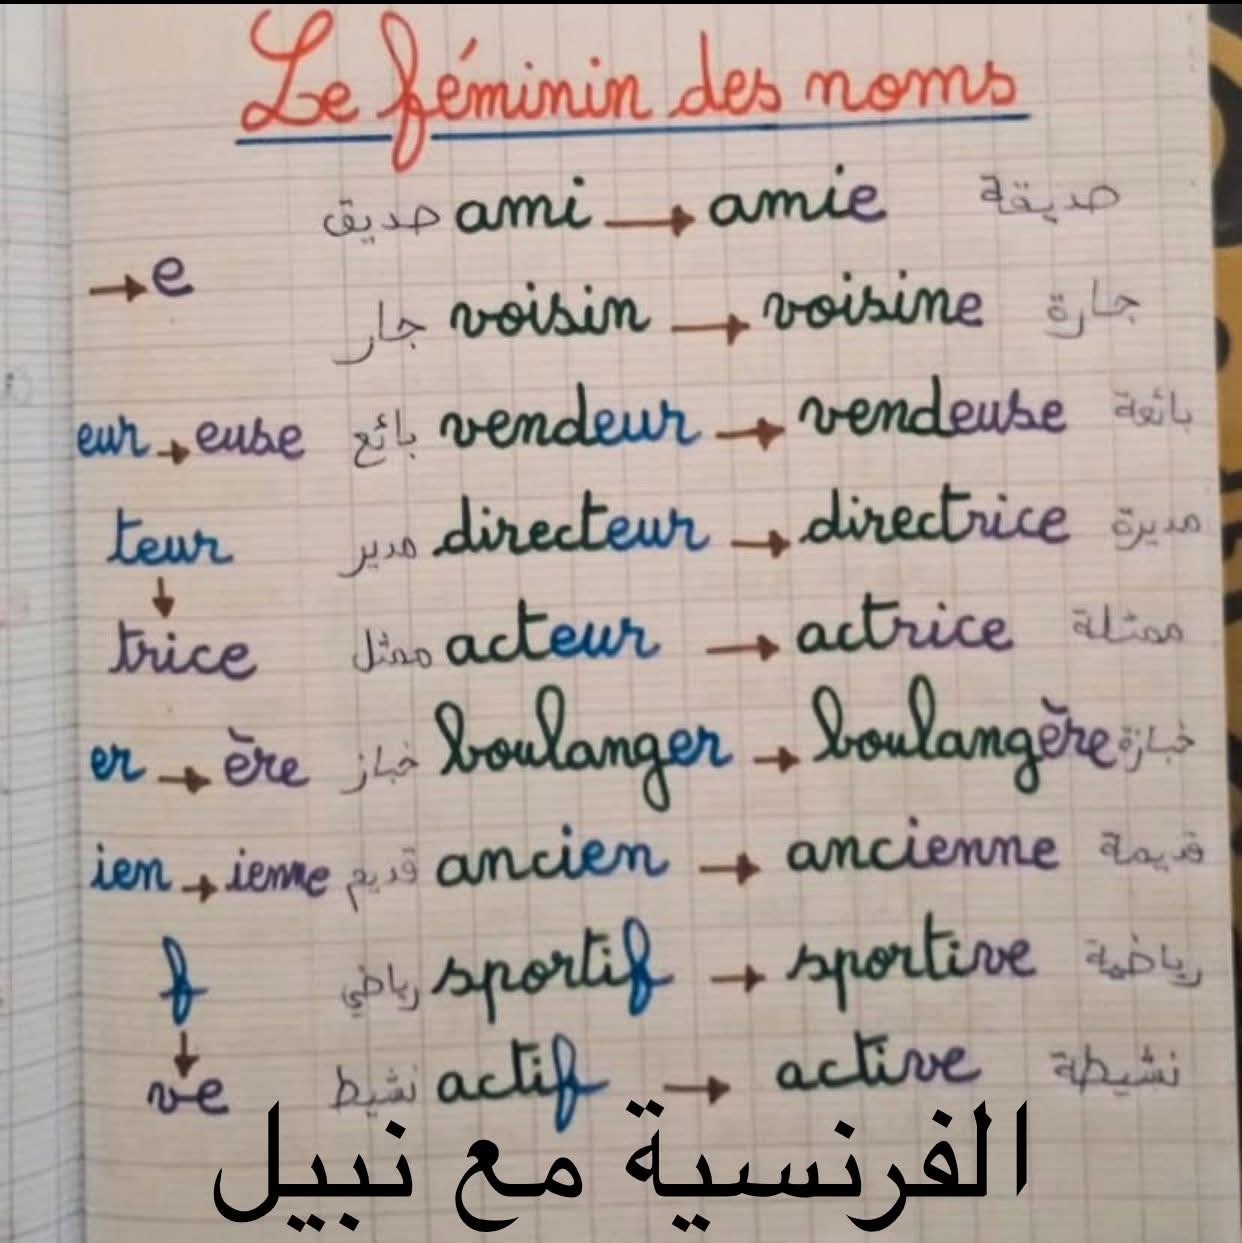 Le féminin des noms
صديق ami → amie صديقة
→ e
جار voisin → voisine جارة
eur → euse بائع vendeur → vendeuse بائعة
teur
↓
trice
مدير directeur → directrice مديرة
ممثل acteur → actrice ممثلة
er → ère خباز boulanger → boulangère خبازة
ien → ienne قديم ancien → ancienne قديمة
f
↓
ve
رياضي sportif → sportive رياضية
نشيط actif → active نشيطة
الفرنسية مع نبيل